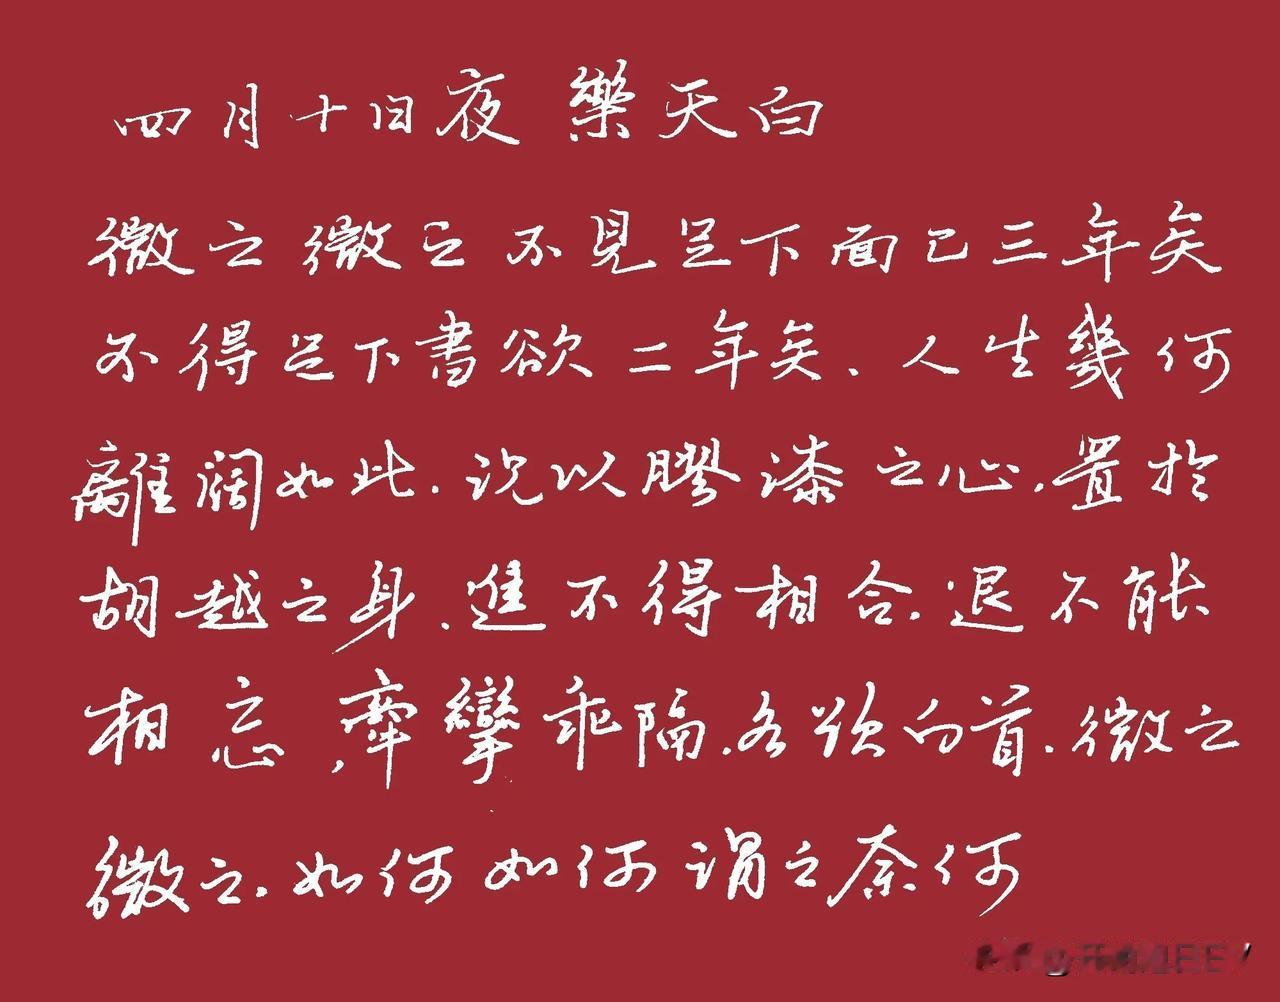 四月十日夜 樂天白
微之微之不見足下面已三年矣
不得足下書欲二年矣.人生幾何
離阔如此.况以膠漆之心.置於
胡越之身.進不得相合.退不能
相忘,牽攣乖隔.各欲白首.微之
微之.如何如何谓之奈何